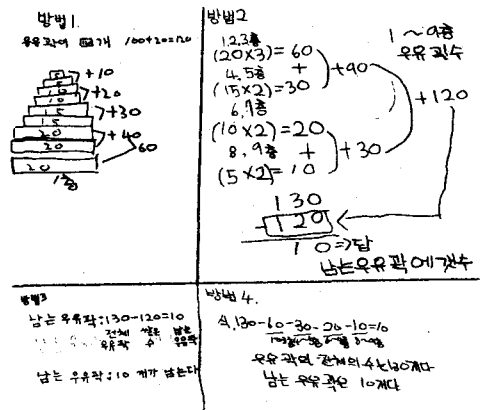 방법1.
우유곽의 개 100+20=120
5
5 +10
10
10 +20
15
15 +30
20 +40
20 60
20
1층
방법2
1,2,3층
(20×3)=60
4,5층 + +90
(15×2)=30
6,7층
(10×2)=20
8,9층 + +30
(5×2)=10
1~9층
우유곽수
+120
130
-120
10=>답
남는우유곽에갯수
방법3
남는우유곽:130-120=10
전체 쌓은 남는
우유곽 수 우유곽
남는 우유곽:10개가 남는다
방법4.
식,130-60-30-20-10=10
우유곽의 전체의 수는130개다
남는 우유곽은 10개다